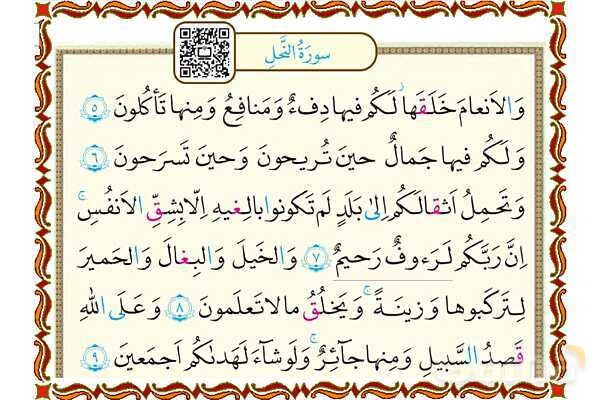 سورَةُ النَّحلِ
وَالاَنعامَ خَلَقَها لَكُم فيها دِفءٌ وَمَنافِعُ وَمِنها تَأكُلونَ ٥
وَلَكُم فيها جَمالٌ حينَ تُريحونَ وَحينَ تَسرَحونَ ٦
وَتَحمِلُ اَثقالَكُم اِلىٰ بَلَدٍ لَم تَكونوا بالِغيهِ اِلّا بِشِقِّ الاَنفُسِ ۚ
اِنَّ رَبَّكُم لَرَءوفٌ رَحيمٌ ٧ وَالخَيلَ وَالبِغالَ وَالحَميرَ
لِتَركَبوها وَزينَةً ۚ وَيَخلُقُ ما لا تَعلَمونَ ٨ وَعَلَى اللّٰهِ
قَصدُ السَّبيلِ وَمِنها جآئِرٌ ۚ وَلَو شآءَ لَهَدىٰكُم اَجمَعينَ ٩